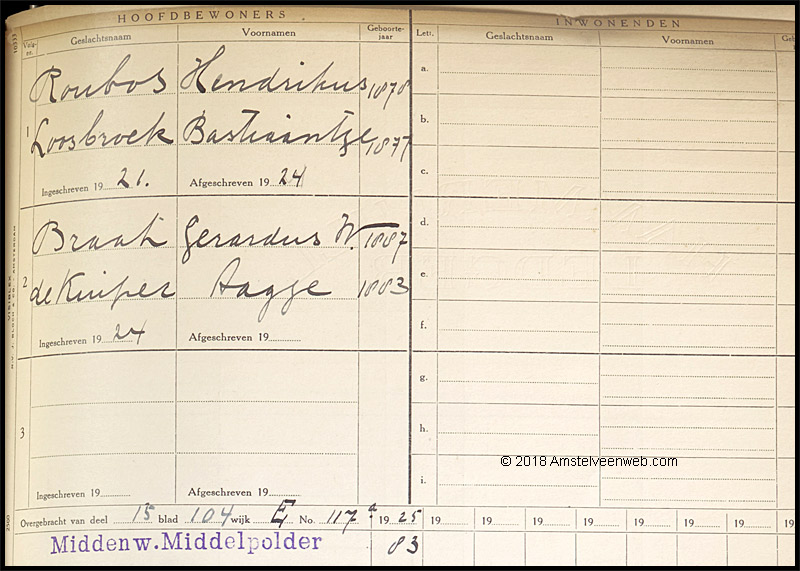 HOOFDBEWONERS INWONENDEN
Volg-nr. Geslachtsnaam Voornamen Geboorte-jaar Lett. Geslachtsnaam Voornamen
1 Roubos Hendrikus 1878 a.
Loosbroek Bastiaantje 1877 b.
Ingeschreven 19 21. Afgeschreven 19 24 c.
2 Braak Gerardus W. 1887 d.
de Kuiper Aagje 1883 e.
Ingeschreven 19 24 Afgeschreven 19 f.
3 g.
h.
Ingeschreven 19 Afgeschreven 19 i.
© 2018 Amstelveenweb.com
Overgebracht van deel 15 blad 104 wijk E No. 117a 19 25 19 19 19 19 19 19 19 19
Middenw. Middelpolder 83